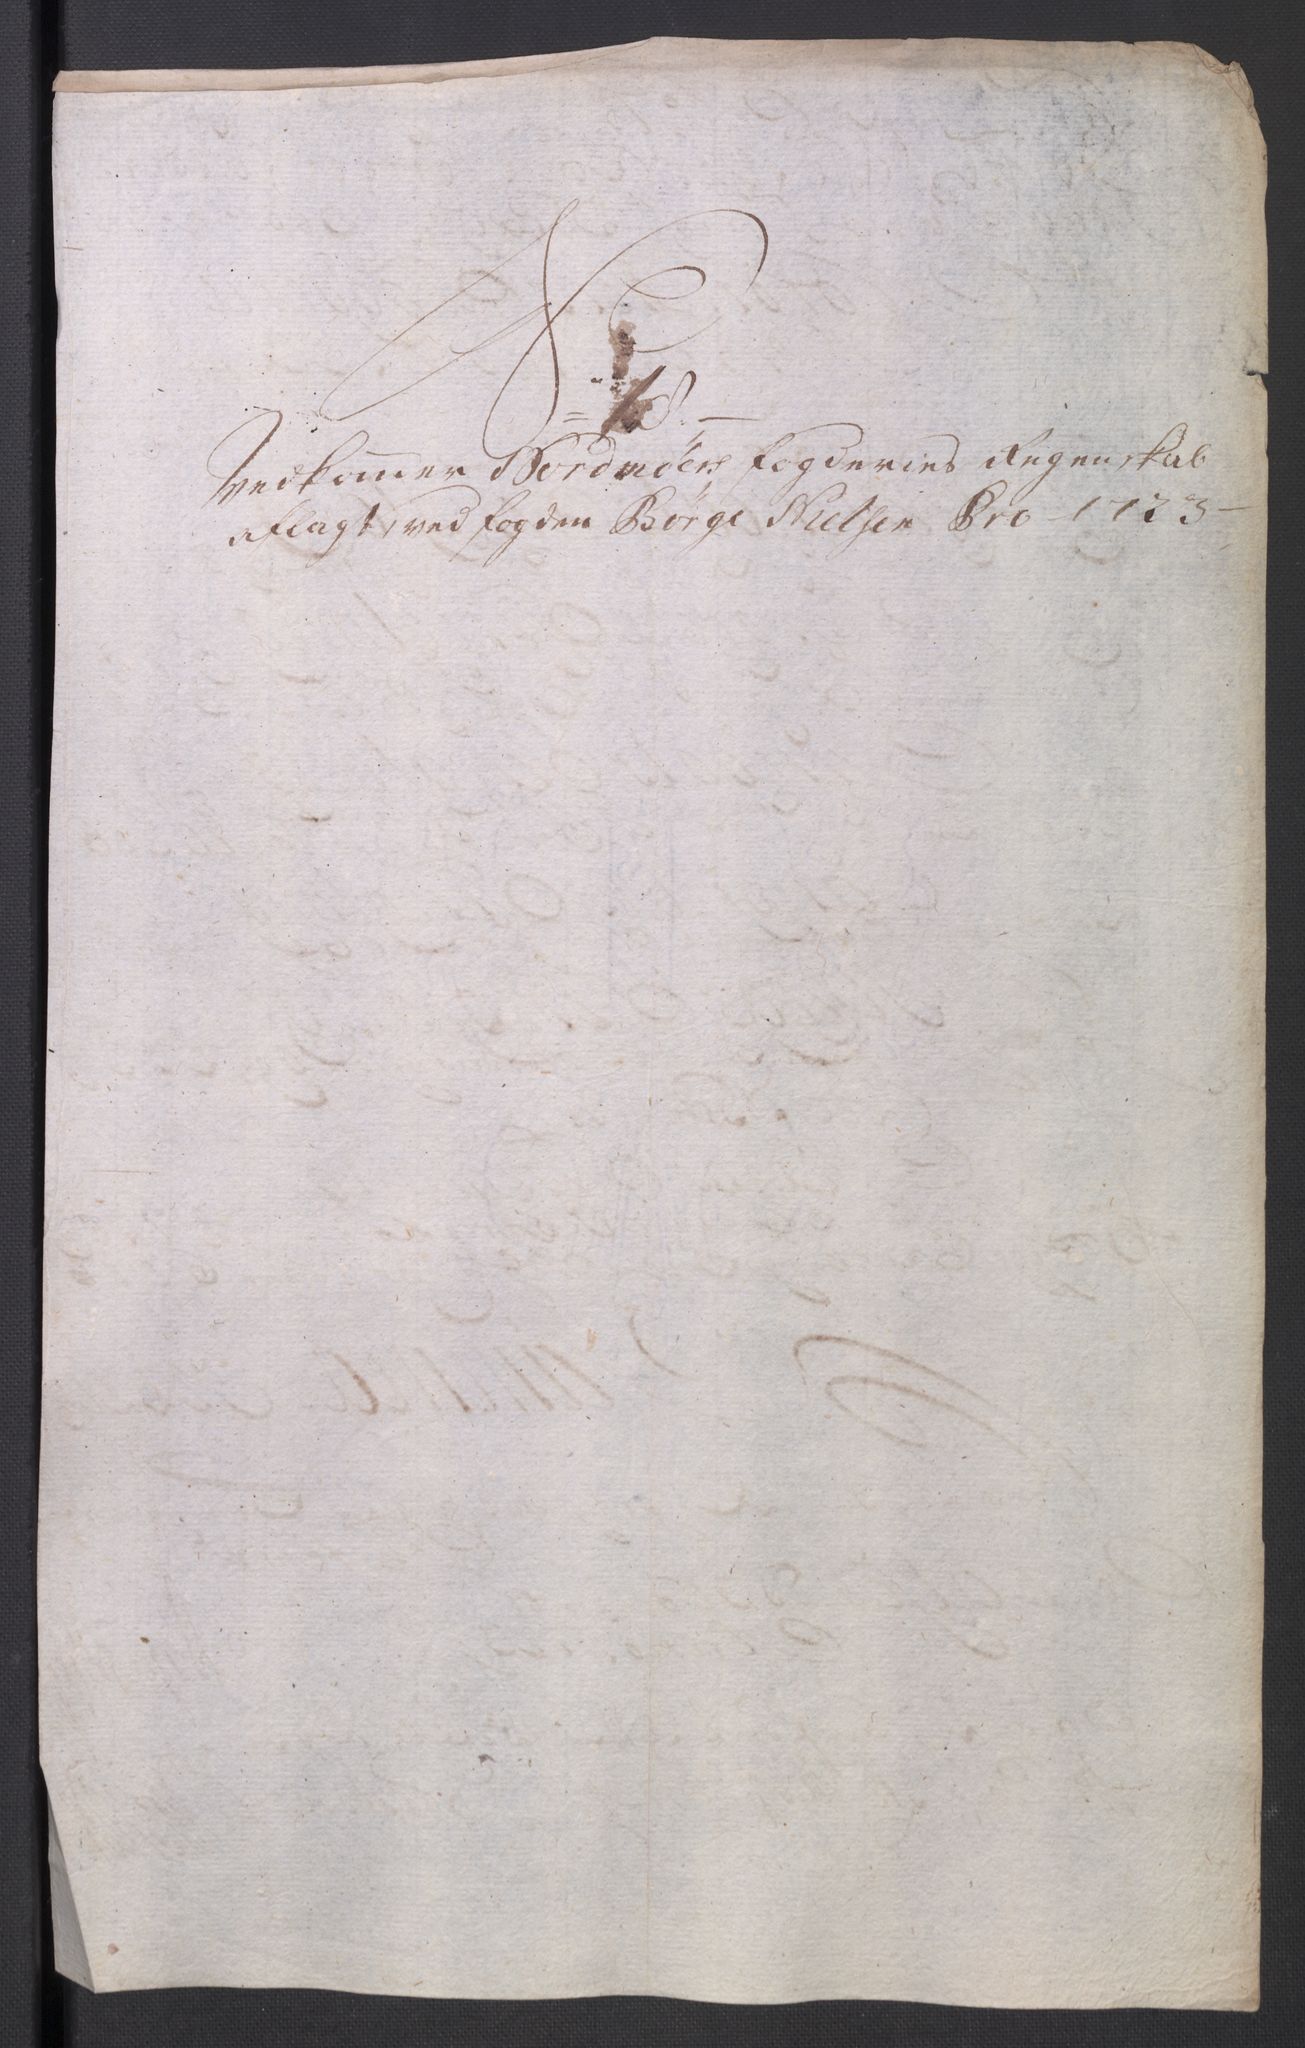 No
Vedkommer Nordmøers fogderies Regenskab
aflagt ved fogden Børge Nielsen Pro 1723